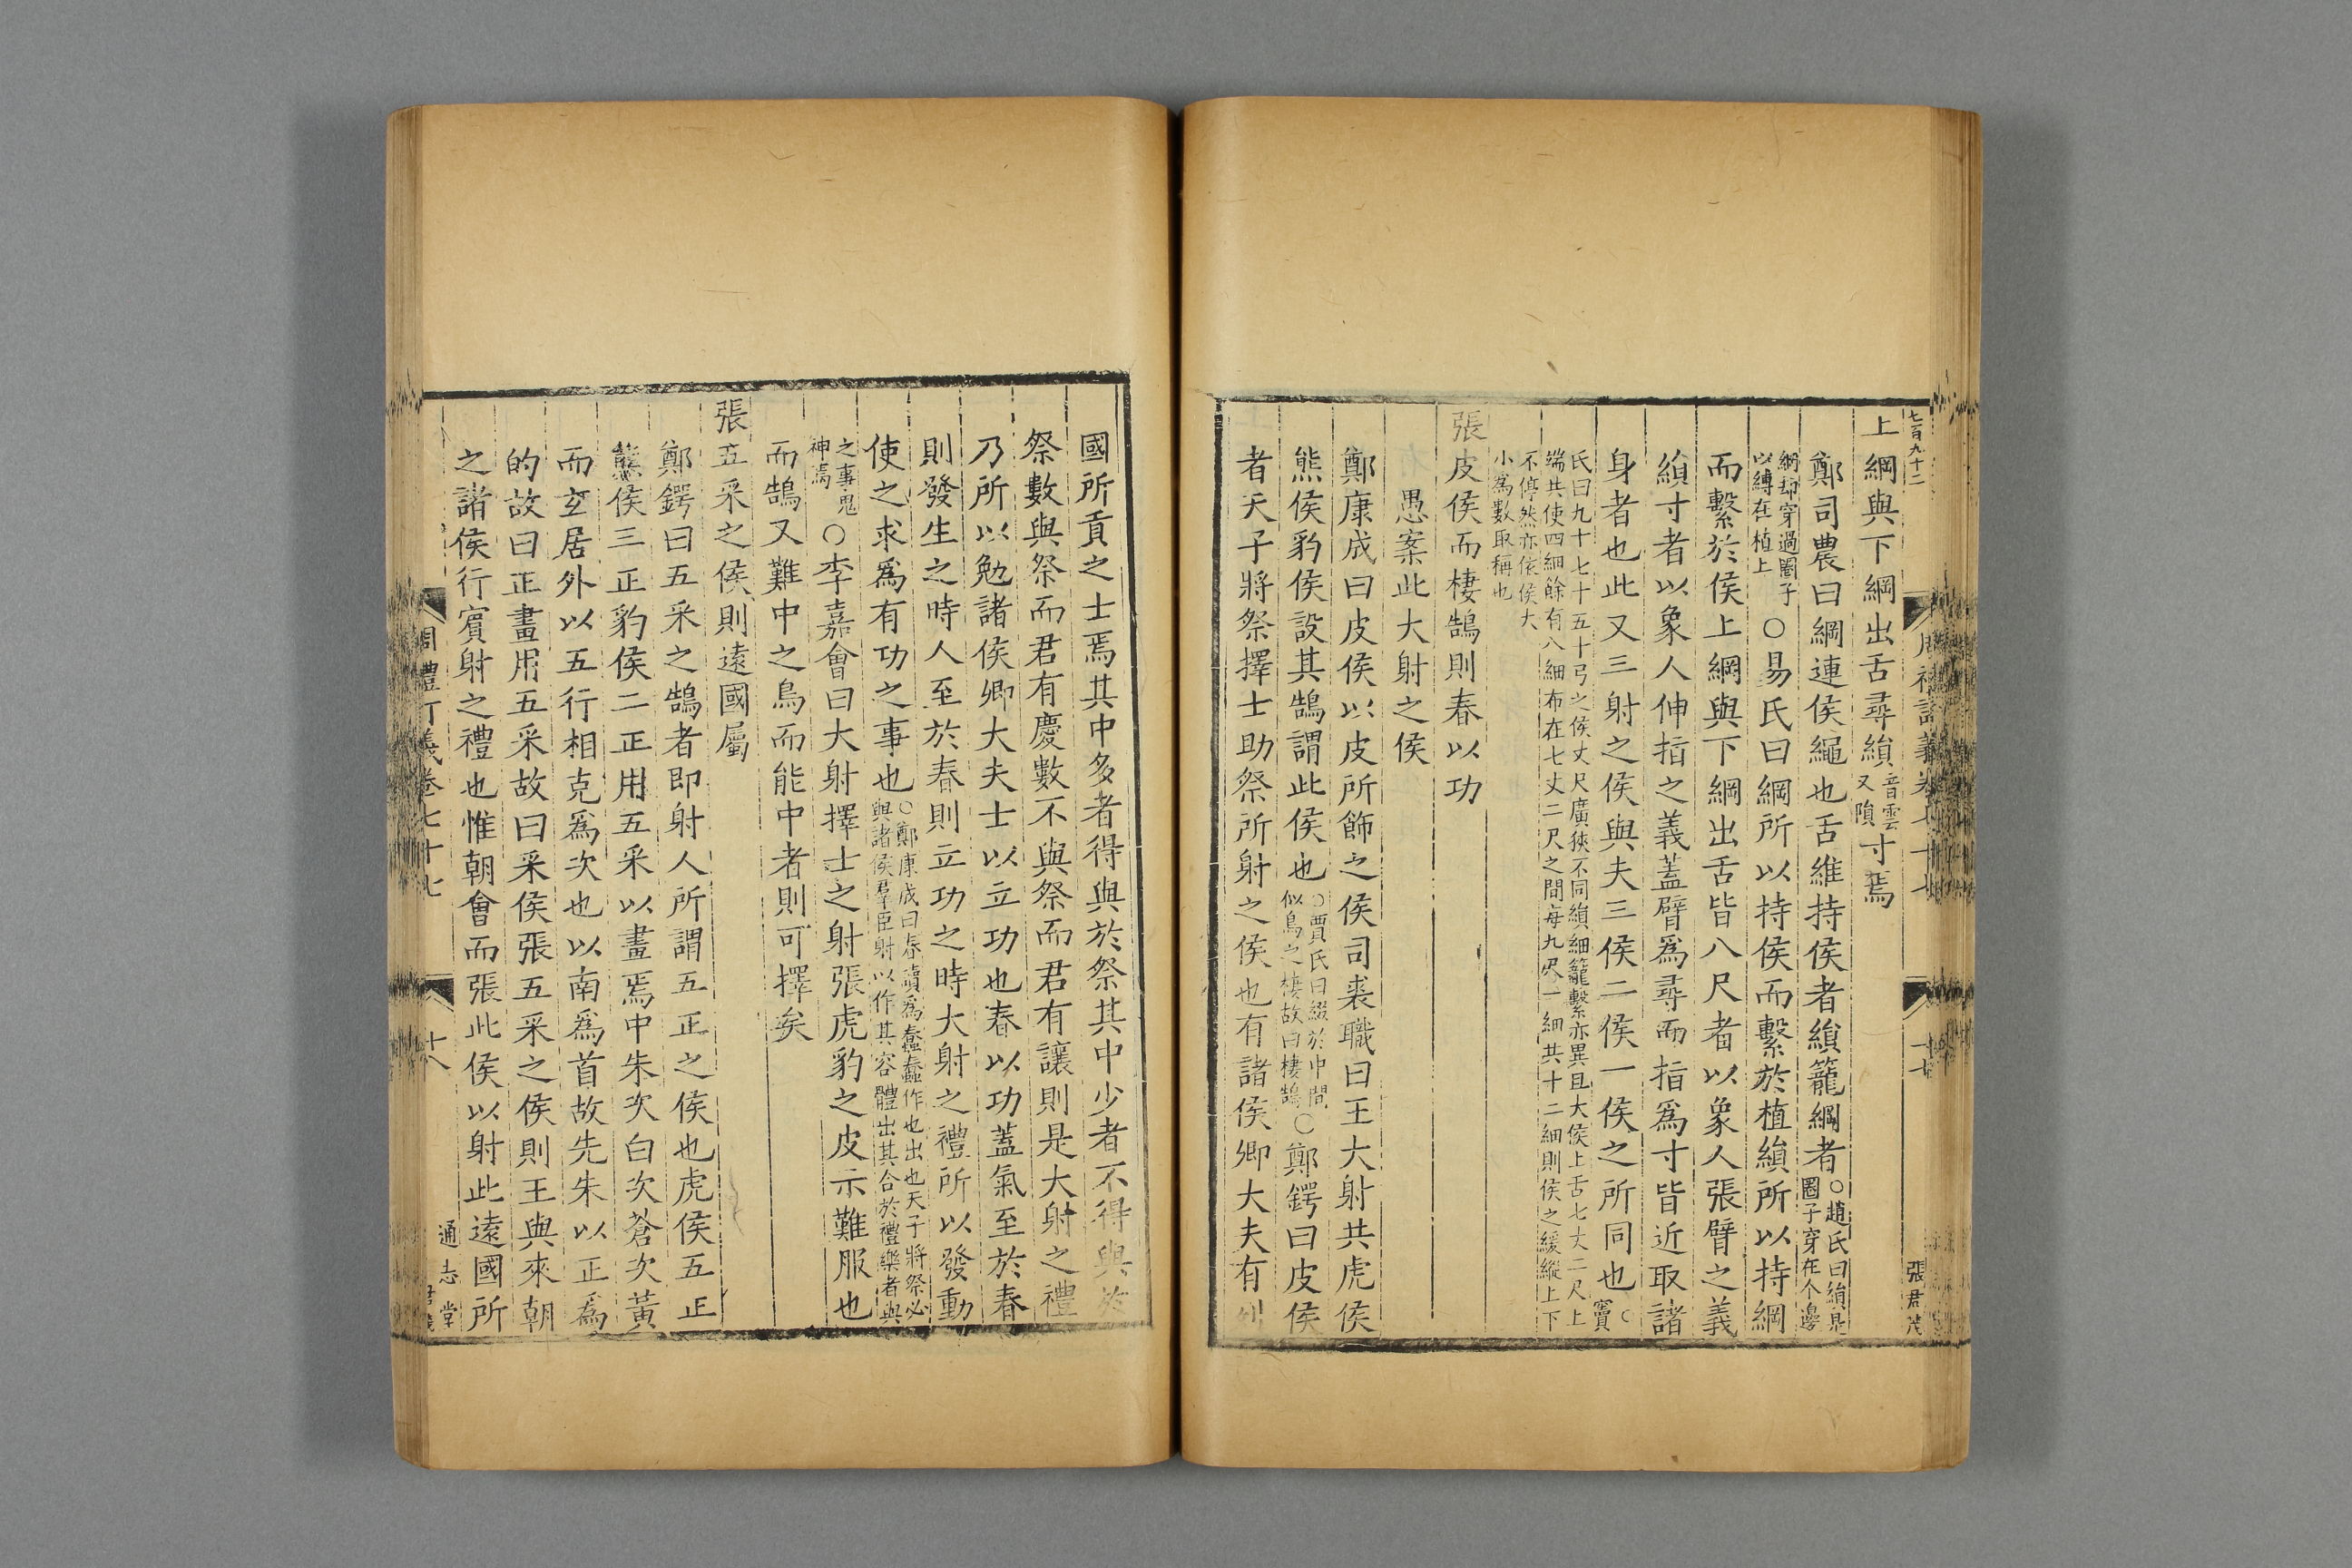 七百九十二
張君茂
上綱與下綱出舌尋縜音雲又隕寸焉
鄭司農曰綱連侯繩也舌維持侯者縜籠綱者○趙氏曰縜是圈子穿在个邊
綱却穿過圈子以縛在植上○易氏曰綱所以持侯而繫於植縜所以持綱
而繫於侯上綱與下綱出舌皆八尺者以象人張臂之義
縜寸者以象人伸指之義蓋臂爲尋而指爲寸皆近取諸
身者也此又三射之侯與夫三侯二侯一侯之所同也○竇
氏曰九十七十五十弓之侯丈尺廣狹不同縜細籠繫亦異且大侯上舌七丈二尺上
端共使四細餘有八細布在七丈二尺之間每九尺一細共十二細則侯之緩縱上下
不停然亦依侯大
小爲數取稱也
張皮侯而棲鵠則春以功
愚案此大射之侯
鄭康成曰皮侯以皮所飾之侯司裘職曰王大射共虎侯
熊侯豹侯設其鵠謂此侯也○賈氏曰綴於中間似鳥之棲故曰棲鵠○鄭鍔曰皮侯
者天子將祭擇士助祭所射之侯也有諸侯卿大夫有
國所貢之士焉其中多者得與於祭其中少者不得與於
祭數與祭而君有慶數不與祭而君有讓則是大射之禮
乃所以勉諸侯卿大夫士以立功也春以功蓋氣至於春
則發生之時人至於春則立功之時大射之禮所以發動
使之求爲有功之事也○鄭康成曰春讀爲蠢蠢作也出也天子將祭必與諸侯羣臣射以作其容體出其合於禮樂者與
之事鬼神焉○李嘉會曰大射擇士之射張虎豹之皮示難服也
而鵠又難中之鳥而能中者則可擇矣
張五采之侯則遠國屬
鄭鍔曰五采之鵠者即射人所謂五正之侯也虎侯五正
熊侯三正豹侯二正用五采以畫焉中朱次白次蒼次黃
而玄居外以五行相克爲次也以南爲首故先朱以正爲
的故曰正畫用五采故曰采侯張五采之侯則王與來朝
之諸侯行賓射之禮也惟朝會而張此侯以射此遠國所
周禮訂義卷七十七
十八
通志堂